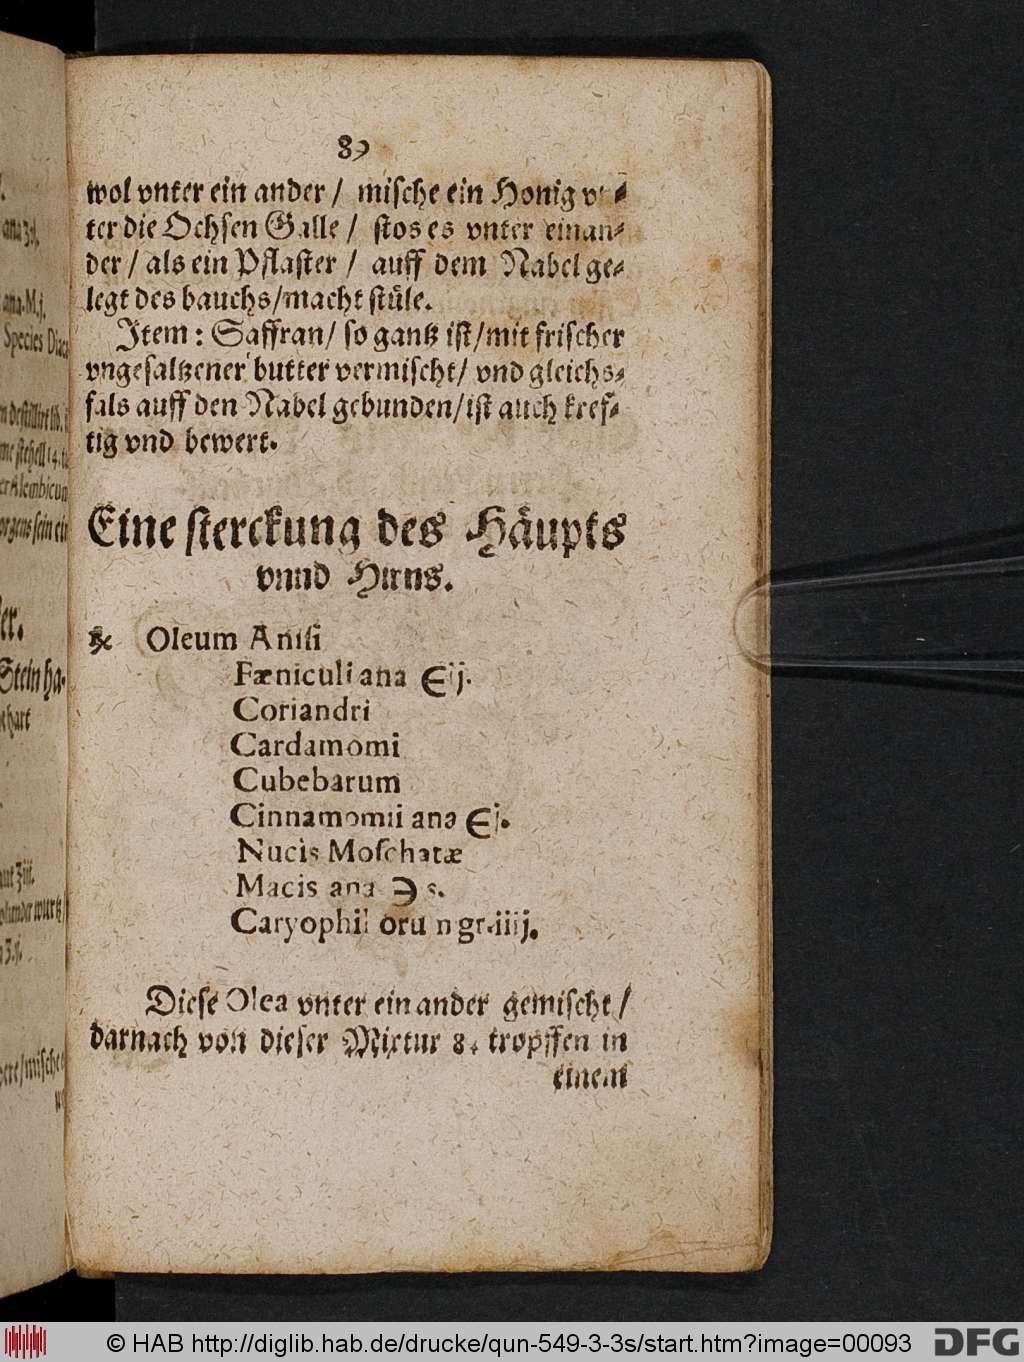 89
wol vnter ein ander / mische ein Honig vn⸗
ter die Ochsen Galle / stos es vnter einan⸗
der / als ein Pflaster / auff dem Nabel ge⸗
legt des bauchs/macht stüle.
Item: Saffran/ so gantz ist/mit frischer
vngesaltzener butter vermischt/ vnd gleichs⸗
fals auff den Nabel gebunden/ist auch kref⸗
tig vnd bewert.
Eine sterckung des Häupts
vnnd Hirns.
℞ Oleum Anisi
Fæniculi ana ∈ij.
Coriandri
Cardamomi
Cubebarum
Cinnamomii ana ∈j.
Nucis Moschatæ
Macis ana ℈ s.
Caryophil oru n gr.iiij.
Diese Olea vnter ein ander gemischt/
darnach von dieser Mixtur 8. tropffen in
einem
ana
ana.M.j.
Species Diac
Stein ha⸗
© HAB http://diglib.hab.de/drucke/qun-549-3-3s/start.htm?image=00093
DFG